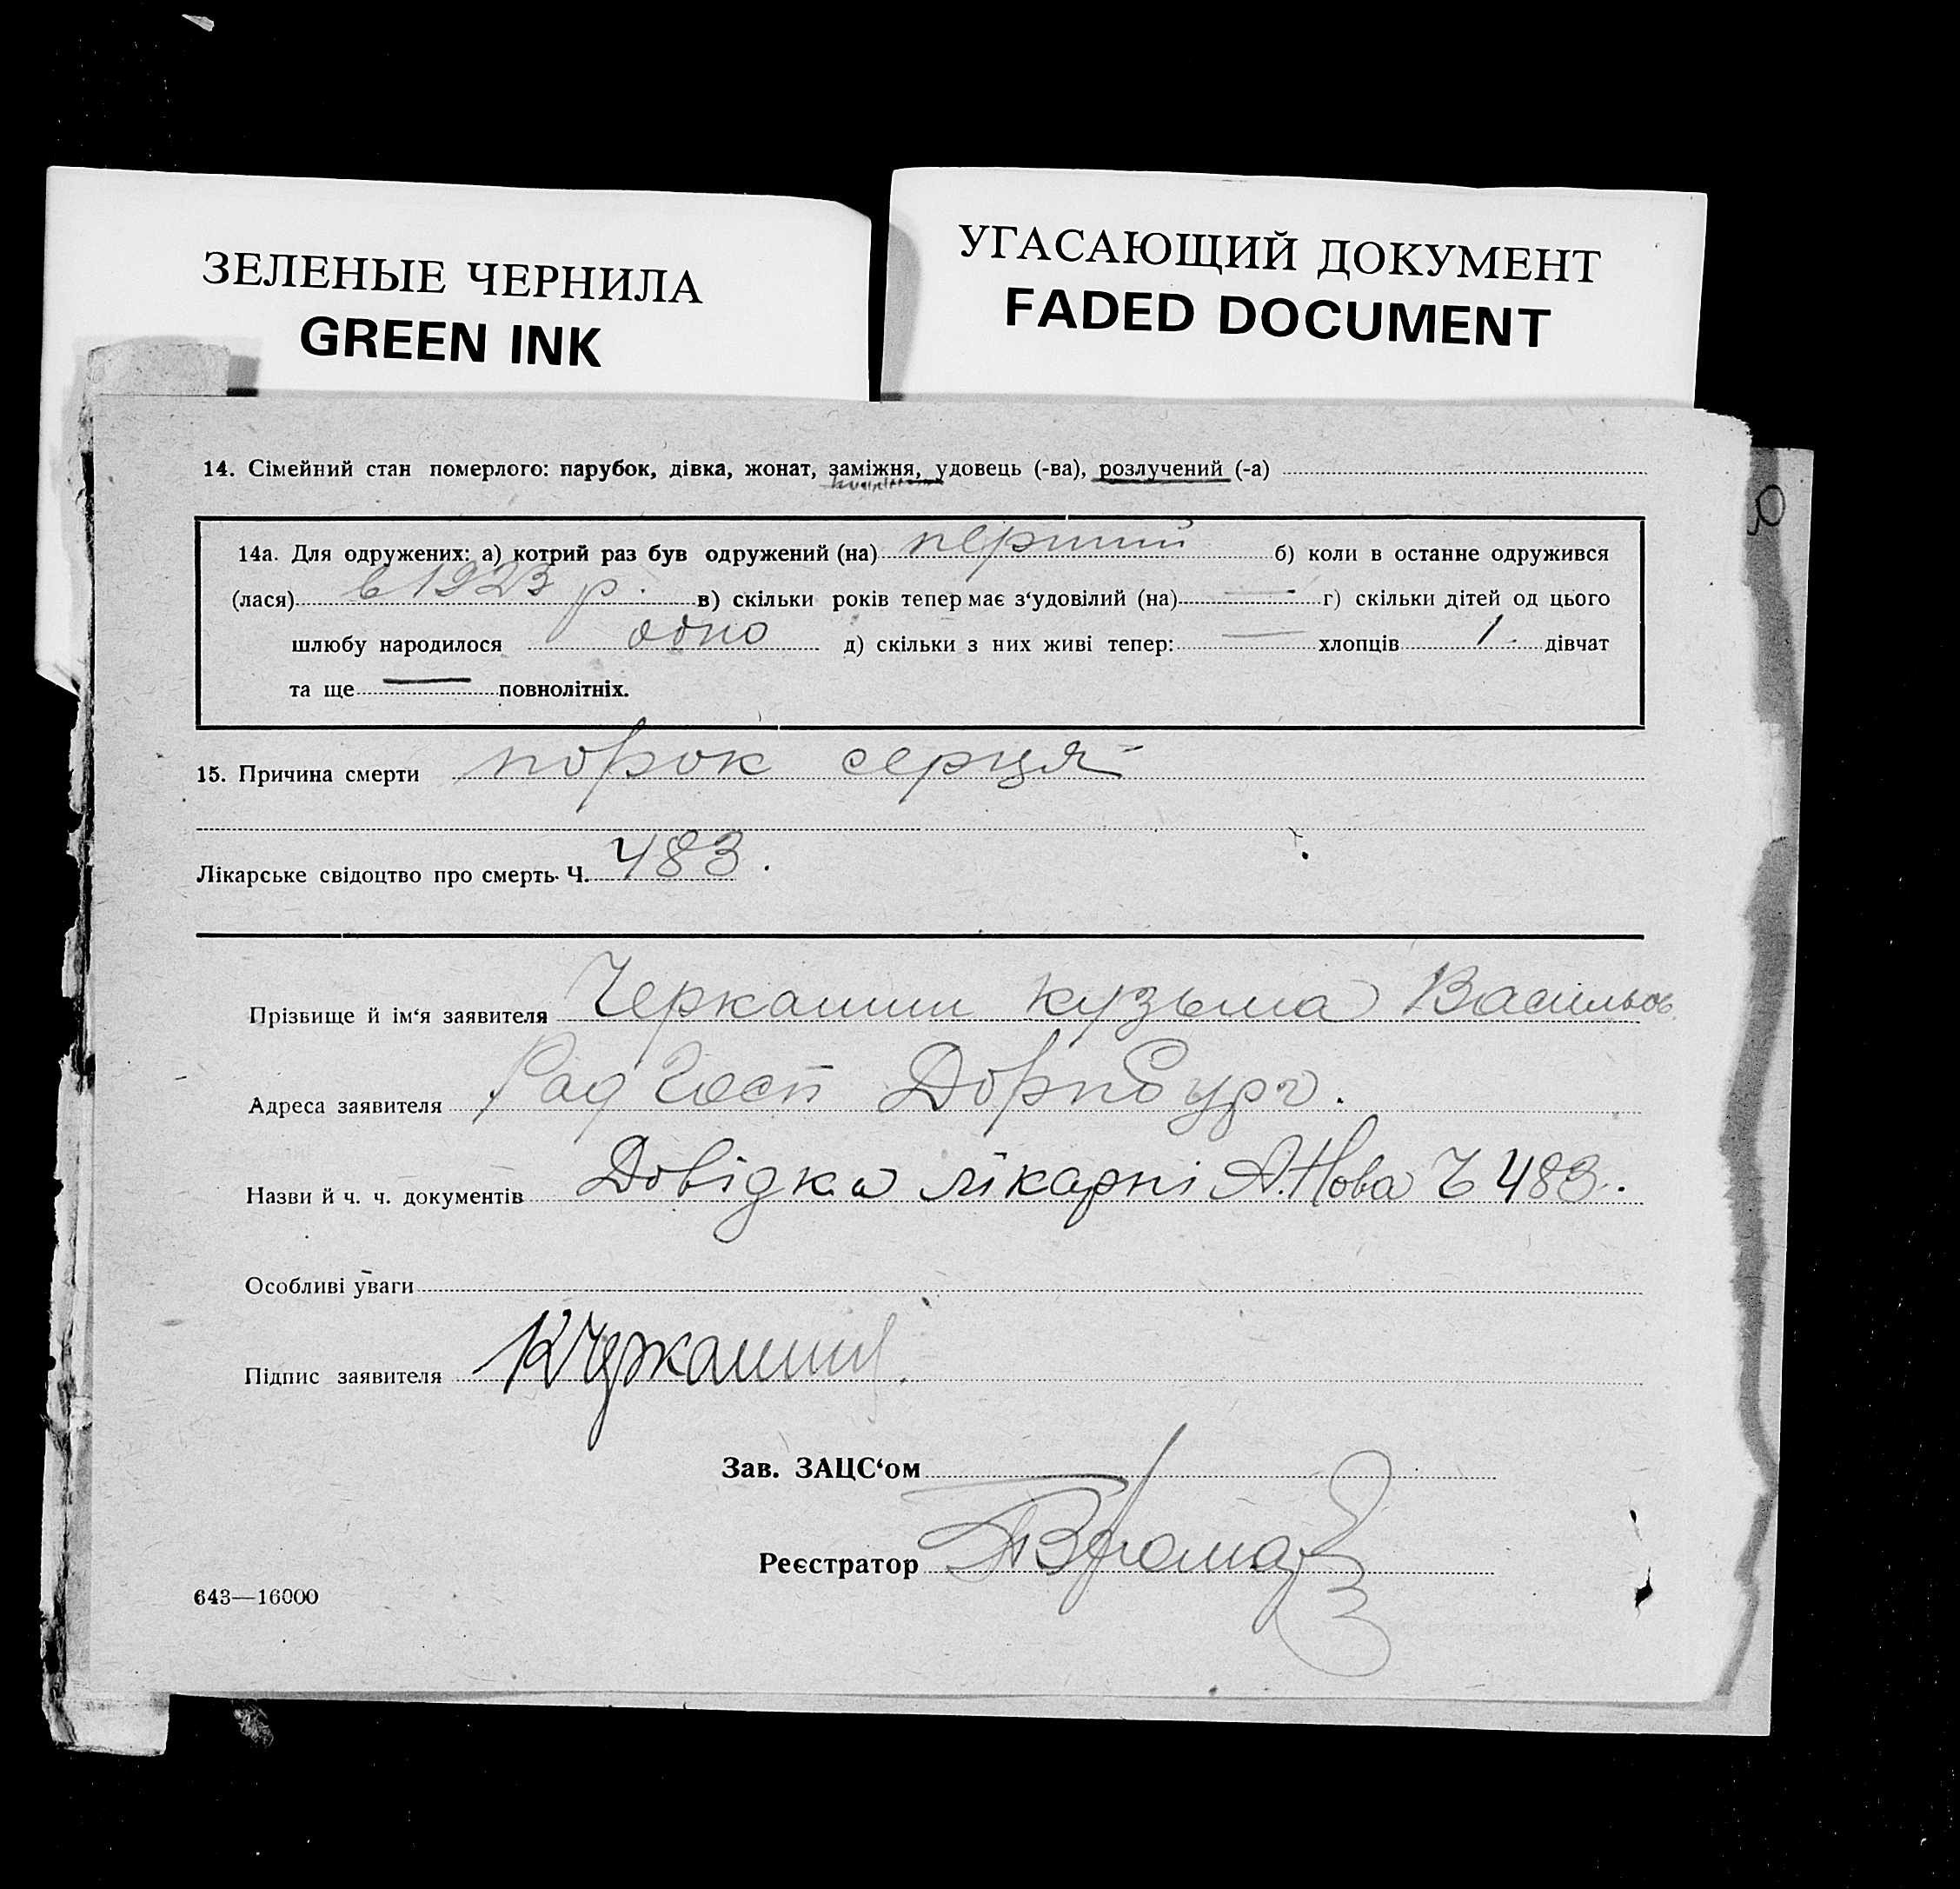 ЗЕЛЕНЫЕ ЧЕРНИЛА
GREEN INK
УГАСАЮЩИЙ ДОКУМЕНТ
FADED DOCUMENT
14. Сімейний стан померлого: парубок, дівка, жонат, заміжня, удовець (-ва), розлучений (-а)
14а. Для одружених: а) котрий раз був одружений (на) перший б) коли в останнє одружився
(лася) в 1923 р. в) скільки років тепер має з‘удовілий (на) — г) скільки дітей од цього
шлюбу народилося одно д) скільки з них живі тепер: — хлопців 1 дівчат
та ще — повнолітніх.
15. Причина смерти порок серця
Лікарське свідоцтво про смерть Ч. 483.
Прізвище й ім‘я заявителя Черкашин Кузьма Васильов.
Адреса заявителя Рад Госп Дорнбург.
Назви й ч. ч. документів Довідка лікарні А.Нова Ч 483.
Особливі уваги
Підпис заявителя КЧеркашин
Зав. ЗАЦС‘ом
Реєстратор
643—16000